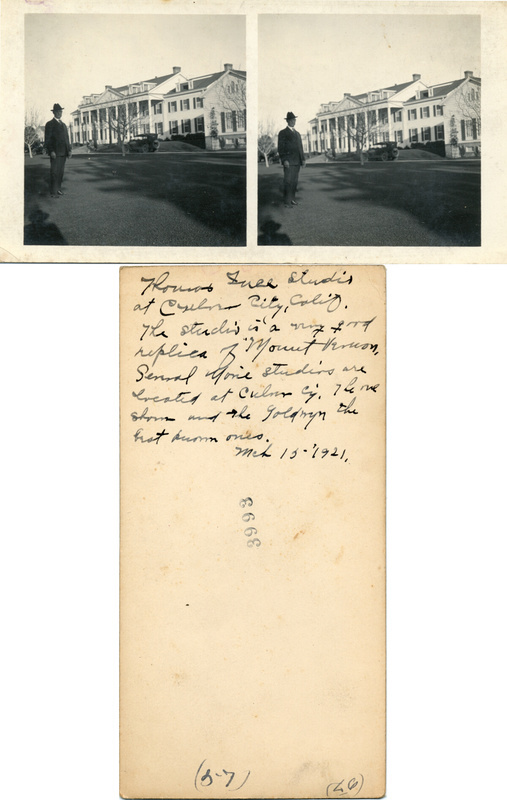 Thomas Ince Studio
at Culver City, Calif.
The studio is a very good
replica of "Mount Vernon,
Several Movie Studios are
located at Culver Cy. The one
shown and the Goldwyn the
best known ones.
Mch 15-1921.
3993
(5-7)